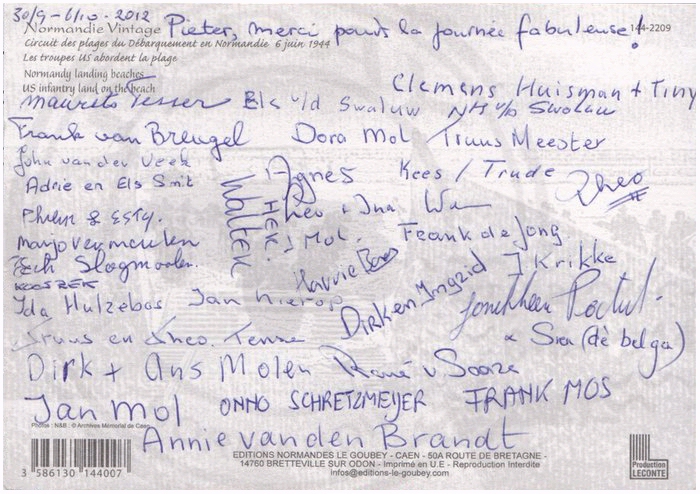 30/9 - 6/10 - 2012
Pieter, merci pour la journée fabuleuse!
Normandie Vintage
144-2209
Circuit des plages du Débarquement en Normandie 6 juin 1944
Les troupes US abordent la plage
Normandy landing beaches
US infantry land on the beach
Clemens Huisman + Tiny
Maurits Tesser Els v/d Swaluw
Frank van Breugel Dora Mol Truus Meester
John van der Veek
Agnes Kees / Trude Theo
Adrie en Els Smit
Walter
Theo + Ina
Mol.
Frank de Jong.
Marjo Vermeulen
Harrie
Dirk en Ingrid
J Krikke
Slagmolen.
KOOSZEK
Ida Hulzebos Jan Nierop
Jonkheer
& Sra (dè belga)
Truus en Theo
Dirk + Ans Molen René v
Jan Mol ONNO SCHRETZMEIJER FRANK MOS
Annie van den Brandt
Photos : N&B : © Archives Mémorial de Caen
3 586130 144007
EDITIONS NORMANDES LE GOUBEY - CAEN - 50A ROUTE DE BRETAGNE -
14760 BRETTEVILLE SUR ODON - Imprimé en U.E - Reproduction Interdite
infos@editions-le-goubey.com
Production
LECONTE